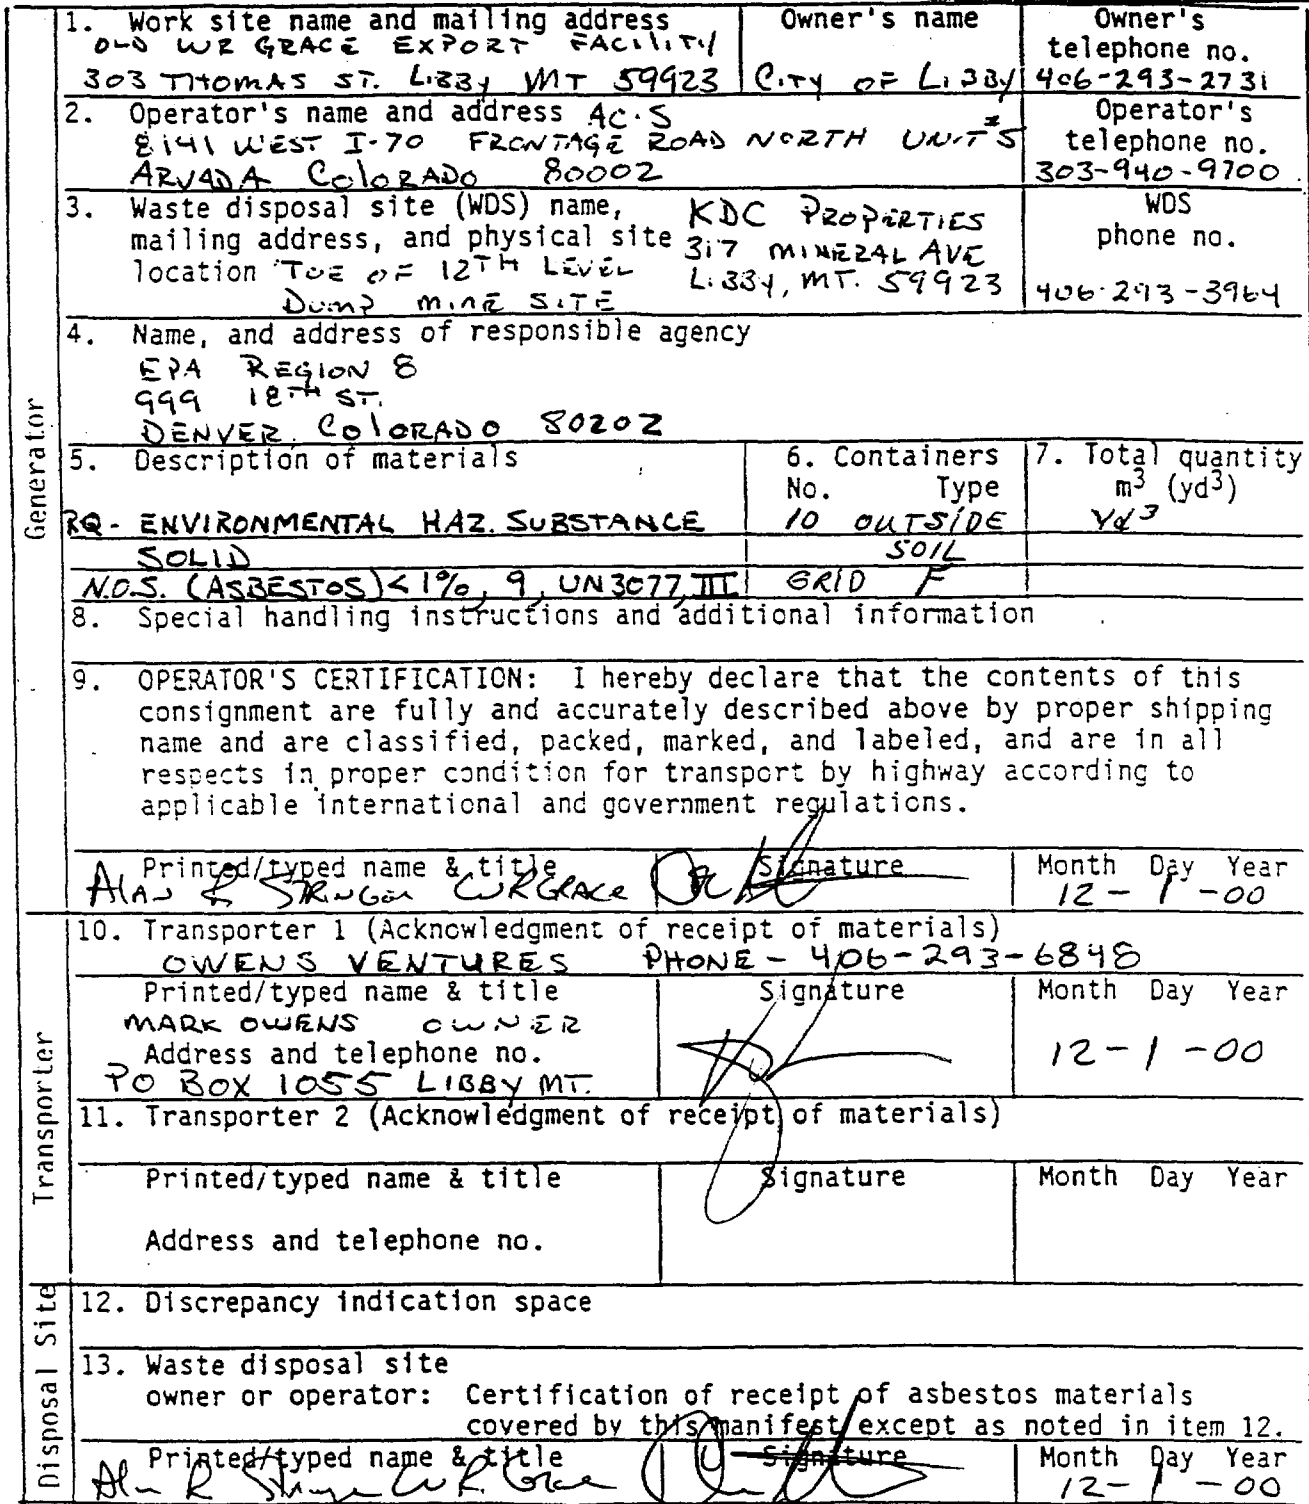 1. Work site name and mailing address
OLD WR GRACE EXPORT FACILITY
303 THOMAS ST. LIBBY MT 59923
Owner's name
CITY OF LIBBY
Owner's
telephone no.
406-293-2731
2. Operator's name and address AC.S
8141 WEST I-70 FRONTAGE ROAD NORTH UNIT #5
ARVADA COLORADO 80002
Operator's
telephone no.
303-940-9700
3. Waste disposal site (WDS) name,
mailing address, and physical site
location TOE OF 12TH LEVEL
DUMP MINE SITE
KDC PROPERTIES
317 MINERAL AVE
LIBBY, MT. 59923
WDS
phone no.
406-293-3964
4. Name, and address of responsible agency
EPA REGION 8
999 18TH ST.
DENVER, COLORADO 80202
5. Description of materials
6. Containers
No. Type
7. Total quantity
m3 (yd3)
RQ - ENVIRONMENTAL HAZ. SUBSTANCE
10 OUTSIDE
Yd3
SOLID
SOIL
N.O.S. (ASBESTOS) < 1%, 9, UN3077, III
GRID F
8. Special handling instructions and additional information
9. OPERATOR'S CERTIFICATION: I hereby declare that the contents of this
consignment are fully and accurately described above by proper shipping
name and are classified, packed, marked, and labeled, and are in all
respects in proper condition for transport by highway according to
applicable international and government regulations.
Printed/typed name & title
Alan R Stringer WR Grace
Signature
Month Day Year
12-1-00
Generator
10. Transporter 1 (Acknowledgment of receipt of materials)
OWENS VENTURES PHONE - 406-293-6848
Printed/typed name & title
MARK OWENS OWNER
Address and telephone no.
PO BOX 1055 LIBBY MT.
Signature
Month Day Year
12-1-00
11. Transporter 2 (Acknowledgment of receipt of materials)
Printed/typed name & title
Signature
Month Day Year
Address and telephone no.
Transporter
12. Discrepancy indication space
13. Waste disposal site
owner or operator: Certification of receipt of asbestos materials
covered by this manifest except as noted in item 12.
Printed/typed name & title
Alan R Stringer W.R. Grace
Signature
Month Day Year
12-1-00
Disposal Site